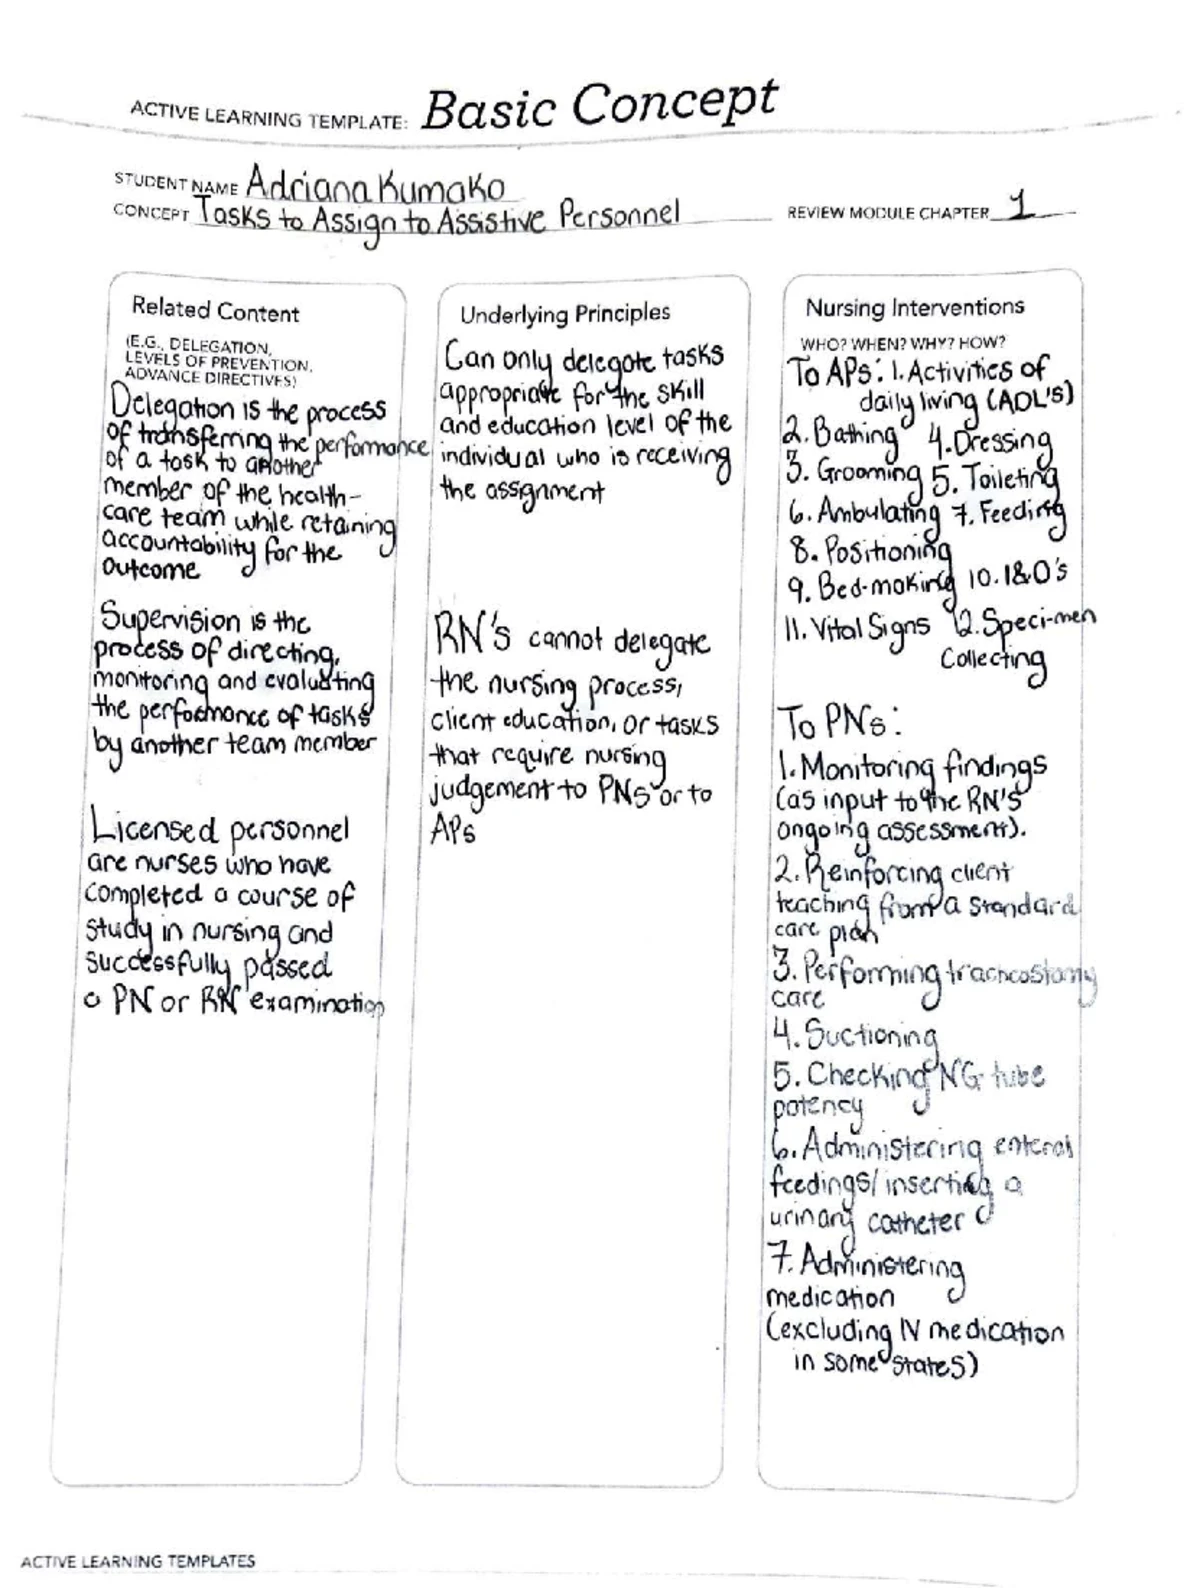 ACTIVE LEARNING TEMPLATE: Basic Concept
STUDENT NAME Adriana Kumako
CONCEPT Tasks to Assign to Assistive Personnel
REVIEW MODULE CHAPTER 1
Related Content
(E.G., DELEGATION,
LEVELS OF PREVENTION,
ADVANCE DIRECTIVES)
Delegation is the process
of transferring the performance
of a task to another
member of the health-
care team while retaining
accountability for the
outcome
Supervision is the
process of directing,
monitoring and evaluating
the performance of tasks
by another team member
Licensed personnel
are nurses who have
completed a course of
study in nursing and
successfully passed
a PN or RN examination
Underlying Principles
Can only delegate tasks
appropriate for the skill
and education level of the
individual who is receiving
the assignment
RN's cannot delegate
the nursing process,
client education, or tasks
that require nursing
judgement to PNs or to
APs
Nursing Interventions
WHO? WHEN? WHY? HOW?
To APs: 1. Activities of
daily living (ADL's)
2. Bathing 4. Dressing
3. Grooming 5. Toileting
6. Ambulating 7. Feeding
8. Positioning
9. Bed-making 10. I&O's
11. Vital Signs 12. Speci-men
Collecting
To PNs:
1. Monitoring findings
(as input to the RN's
ongoing assessment).
2. Reinforcing client
teaching from a standard
care plan
3. Performing tracheostomy
care
4. Suctioning
5. Checking NG tube
patency
6. Administering enteral
feedings/inserting a
urinary catheter
7. Administering
medication
(excluding IV medication
in some states)
ACTIVE LEARNING TEMPLATES